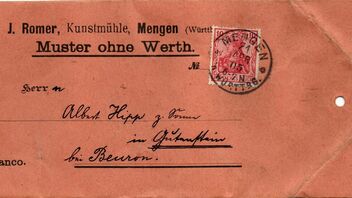 J. Romer, Kunstmühle, Mengen (Württ
Muster ohne Werth.
№
Herrn
Albert Hipp z. Sonne
in Gutenstein
bei Beuron.
anco.
MENGEN
WÜRTTBG.